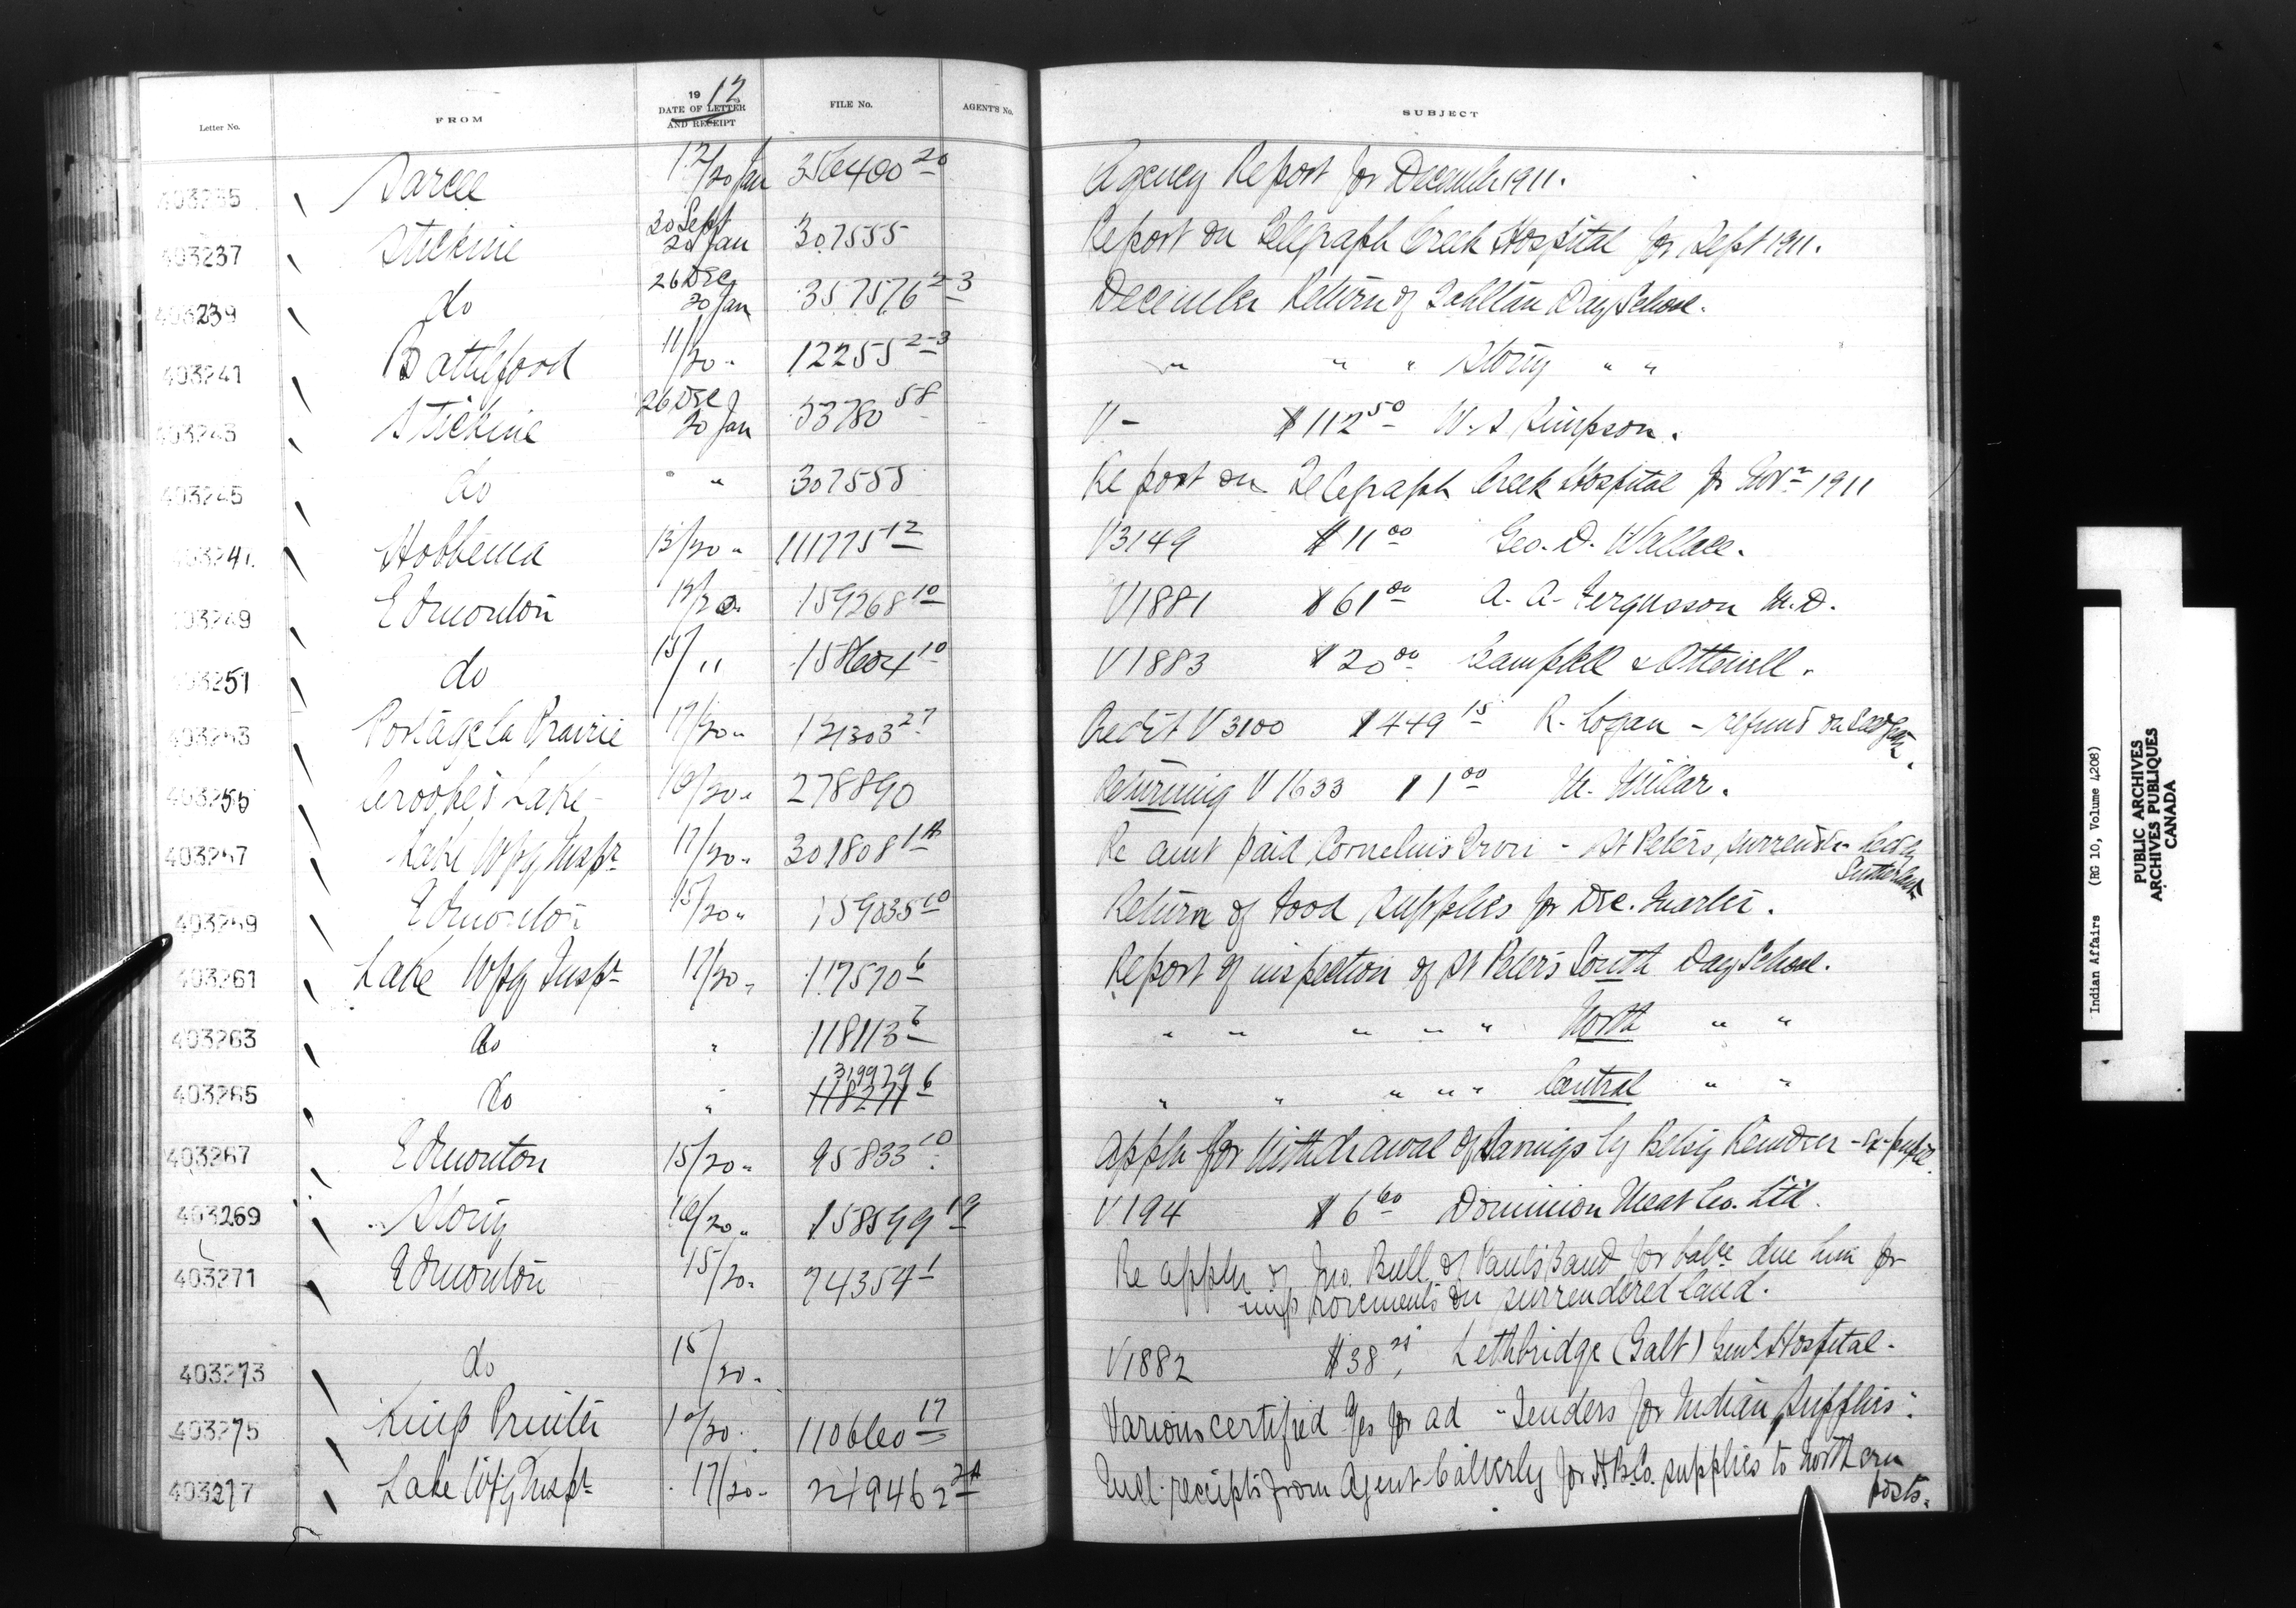 Letter No. FROM 1912 DATE OF LETTER AND RECEIPT FILE No. AGENT'S No. SUBJECT
403235 Sarcee 12/20 Jan 356400 20 Agency Report for December 1911.
403237 Stickine 30 Sept 20 Jan 307555 Report on Telegraph Creek Hospital for Sept 1911.
403239 do 26 Dec 20 Jan 357576 2-3 December Return of Tahltan Day School.
403241 Battleford 11/20 " 12255 2-3 " " " Stony " "
403243 Stickine 26 Dec 20 Jan 53780 58 V - $112 50 W. S Simpson.
403245 do " " 307555 Report on Telegraph Creek Hospital for Novr 1911
40324 Hobbema 13/20 " 111775 12 V3149 $11 00 Geo. D. Wallace.
403249 Edmonton 13/20 159268 10 V1881 $61 00 A. A. Fergusson M.D.
403251 do 15/ " 158604 10 V1883 $20 00 Campbell & Ottewell.
403253 Portage la Prairie 17/20 " 121303 27 Recdt V3100 $449 15 R. Logan - refund on
403255 Crooked Lake 16/20 " 278890 Returning V1633 $1 00 M. Millar.
403257 Lake Wpg Inspr 17/20 " 301808 1A Re amt paid Cornelius - St Peters surrender
Sutherland
403259 Edmonton 15/20 " 159035 10 Return of Food Supplies for Dec. Quarter.
403261 Lake Wpg Inspr 17/20 " 117570 6 Report of inspection of St Peter's South Day School.
403263 do " 118113 6 " " " " " North " "
403265 do " 319979 118271 6 " " " " " Central " "
403267 Edmonton 15/20 " 95833 10 Appln for Withdrawal of Savings by Betsy - ex-pupil.
403269 Stony 16/20 " 158599 19 V194 $6 60 Dominion Meat Co. Ltd.
403271 Edmonton 15/20 " 74354 1 Re appln of Jno. Bull, of Paul's Band for balce due him for
improvements on surrendered land.
403273 do 15/20 " V1882 $38 Lethbridge (Galt) Genl Hospital.
403275 King's Printer 10/20 110660 17 Various certified for ad "Tenders for Indian Supplies".
403277 Lake Wpg Inspr 17/20 " 219462 2A Encl. receipts from Agent Calverly for H.B.Co. supplies to northern
posts.
Indian Affairs (RG 10, Volume 4208)
PUBLIC ARCHIVES
ARCHIVES PUBLIQUES
CANADA